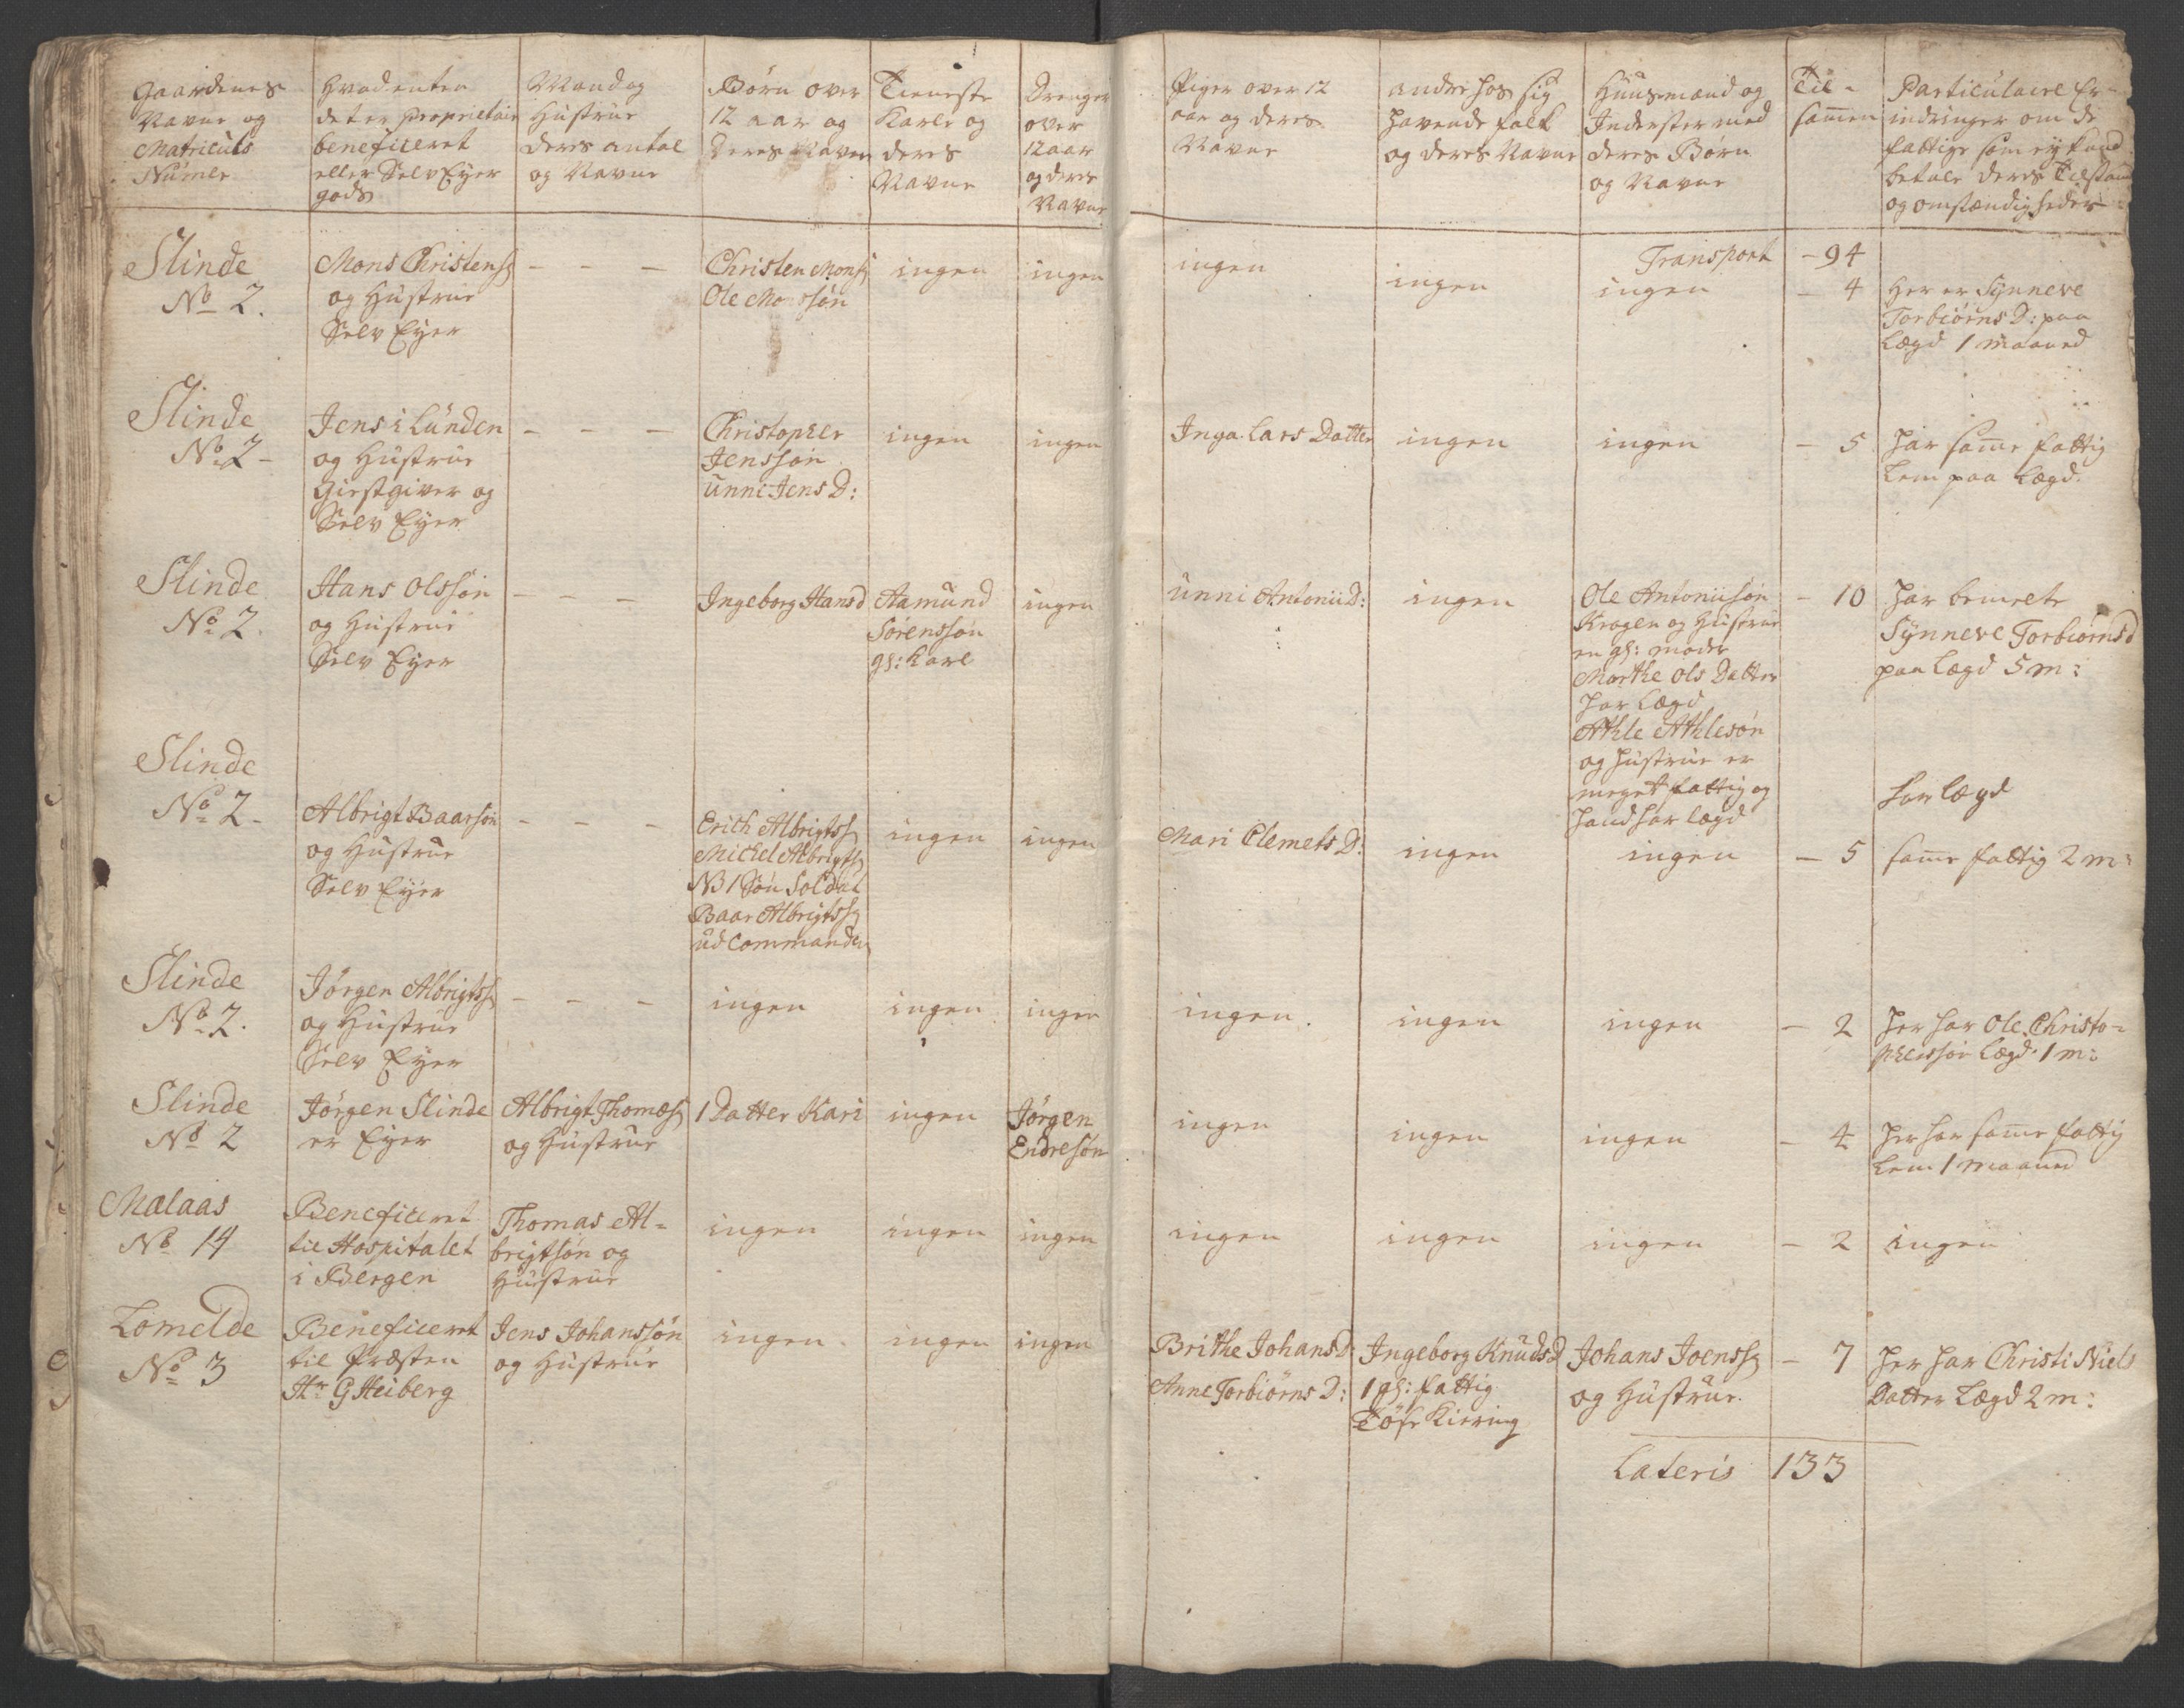 Gaardenes
Navne og
Matriculs
Numer
Hvad enten
det er Proprietair
beneficeret
eller Selv Eyer
gods
Mand og
Hustrue
deres antal
og Navne
Børn over
12 aar og
deres Navne
Tieneste
Karle og
deres
Navne
Drenge
over
12 aar
og deres
Navne
Piger over 12
aar og deres
Navne
andre hos sig
havende folk
og deres Navne
Huusmænd og
Inderster med
deres Børn
og Navne
Til-
sam̄en
Particulaire Er-
indringer om de
fattige som ey kand
betale deres Tilstand
og omstændigheder
Transport - 94
Slinde
No 2.
Mons Christens:
og Hustrue
Selv Eyer
- - -
Christen Mons:
Ole Monssøn
ingen
ingen
ingen
ingen
ingen
- 4
Her er Synneve
Torbiørns D: paa
Lægd 1 Maaned
Slinde
No 2 -
Jens i Lunden
og Hustrue
Giestgiver og
Selv Eyer
- - -
Christopher
Jenssøn
Unni Jens D:
ingen
ingen
Inga Lars Datter
ingen
ingen
- 5
har sam̄e fattig
Lem paa Lægd.
Slinde
No 2.
Hans Olssøn
og Hustrue
Selv Eyer
- - -
Ingeborg Hansd
Aamund
Sørenssøn
gl: Karl
ingen
Unni Antonii D:
ingen
Ole Antoniisøn
Krogen og Hustrue
en gl: moder
Marthe Ols Datter
har Lægd
Athle Athlesøn
og hustrue er
meget fattig og
hand har lægd
- 10
har bemelte
Synneve Torbiørnsd
paa Lægd 5 m:
Slinde
No 2 -
Albrigt Baarsøn
og Hustrue
Selv Eyer
- - -
Erich Albrigtss:
Michel Albrigts:
NB 1 Søn Soldat
Baar Albrigtss:
ud Commander
ingen
ingen
Mari Clemets D:
ingen
ingen
- 5
har lægd
sam̄e fattig 2 m:
Slinde
No 2.
Jørgen Albrigtss:
og Hustrue
Selv Eyer
- - -
ingen
ingen
ingen
ingen.
ingen
ingen
- 2
her har Ole Christo-
phersøn Lægd 1 m:
Slinde
No 2
Jørgen Slinde
er Eyer
Albrigt Thomæs:
og Hustrue
1 Datter Kari
ingen
Jørgen
Endresøn
ingen
ingen
ingen
- 4
her har sam̄e fattig
Lem 1 Maaned
Mælaas
No 14
Beneficeret
til Hospitalet
i Bergen
Thomas Al-
brigtsøn og
Hustrue
ingen
ingen
ingen
ingen
ingen
ingen
- 2
ingen
Lomelde
No 3
Beneficeret
til Præsten
Hr G Heiberg
Jens Johanssøn
og Hustrue
ingen
ingen
ingen
Brithe Johans D:
Anne Torbiørns D:
Ingeborg Knuds D
1 gl: fattig
Tøse Kiering
Johans Joenss:
og Hustrue.
- 7
her har Christi Niels
Datter Lægd 2 m:
Lateris 133